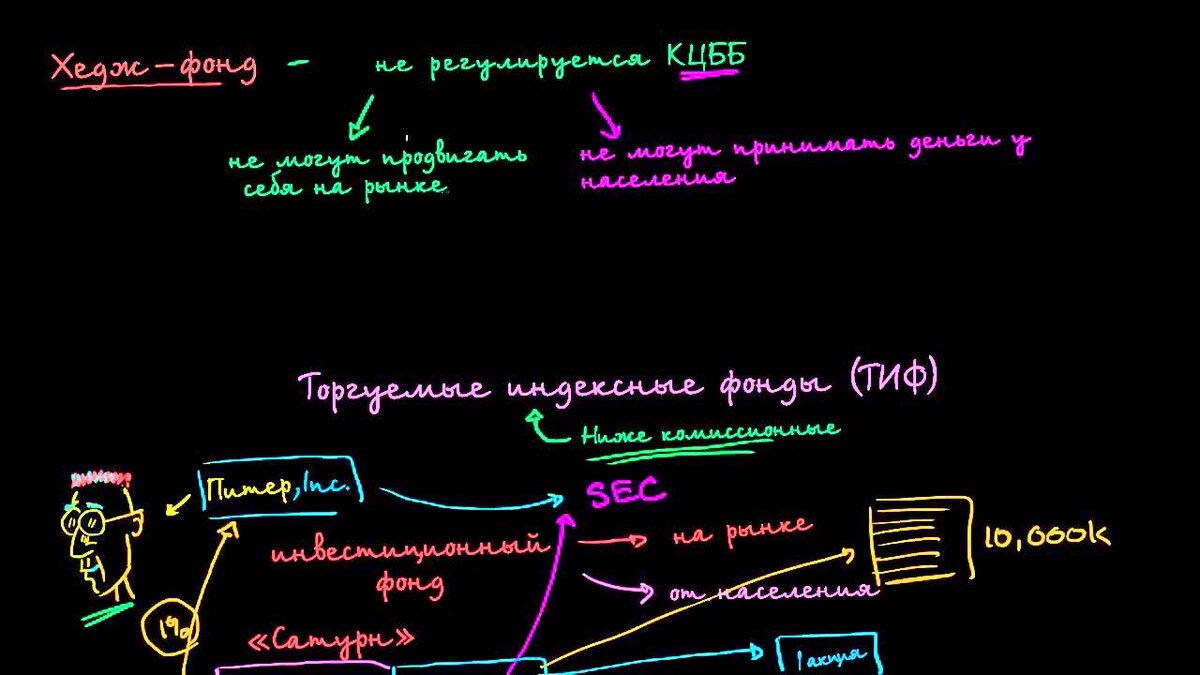 Хедж-фонд - не регулируется КЦББ
не могут продвигать
себя на рынке
не могут принимать деньги у
населения
Торгуемые индексные фонды (ТИФ)
Ниже комиссионные
Питер, Inc.
SEC
инвестиционный
фонд
на рынке
от населения
10,000k
1%
«Сатурн»
1 акция